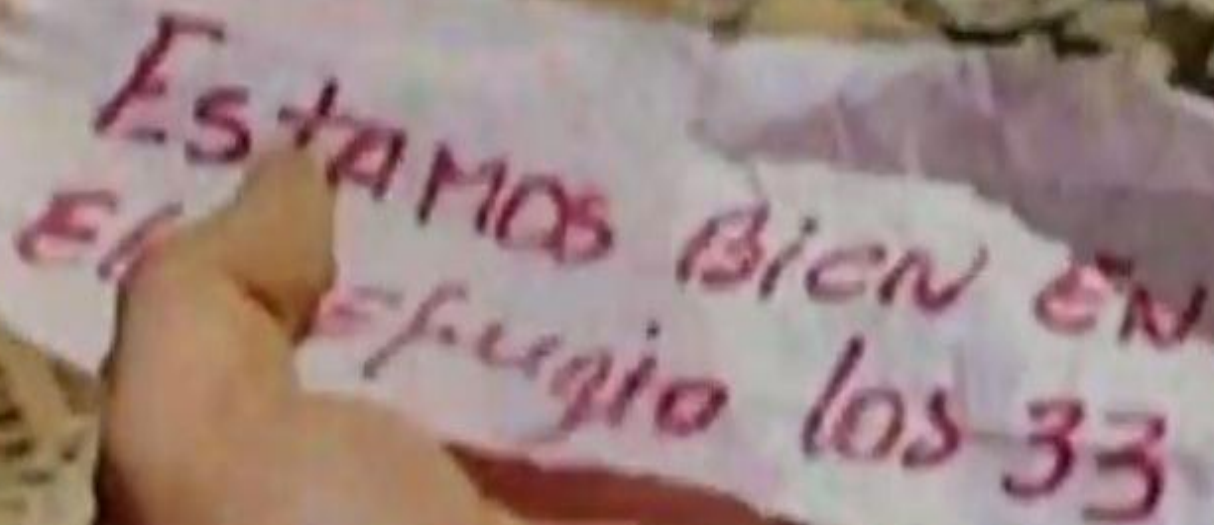 Estamos BiEN EN
El Refugio los 33